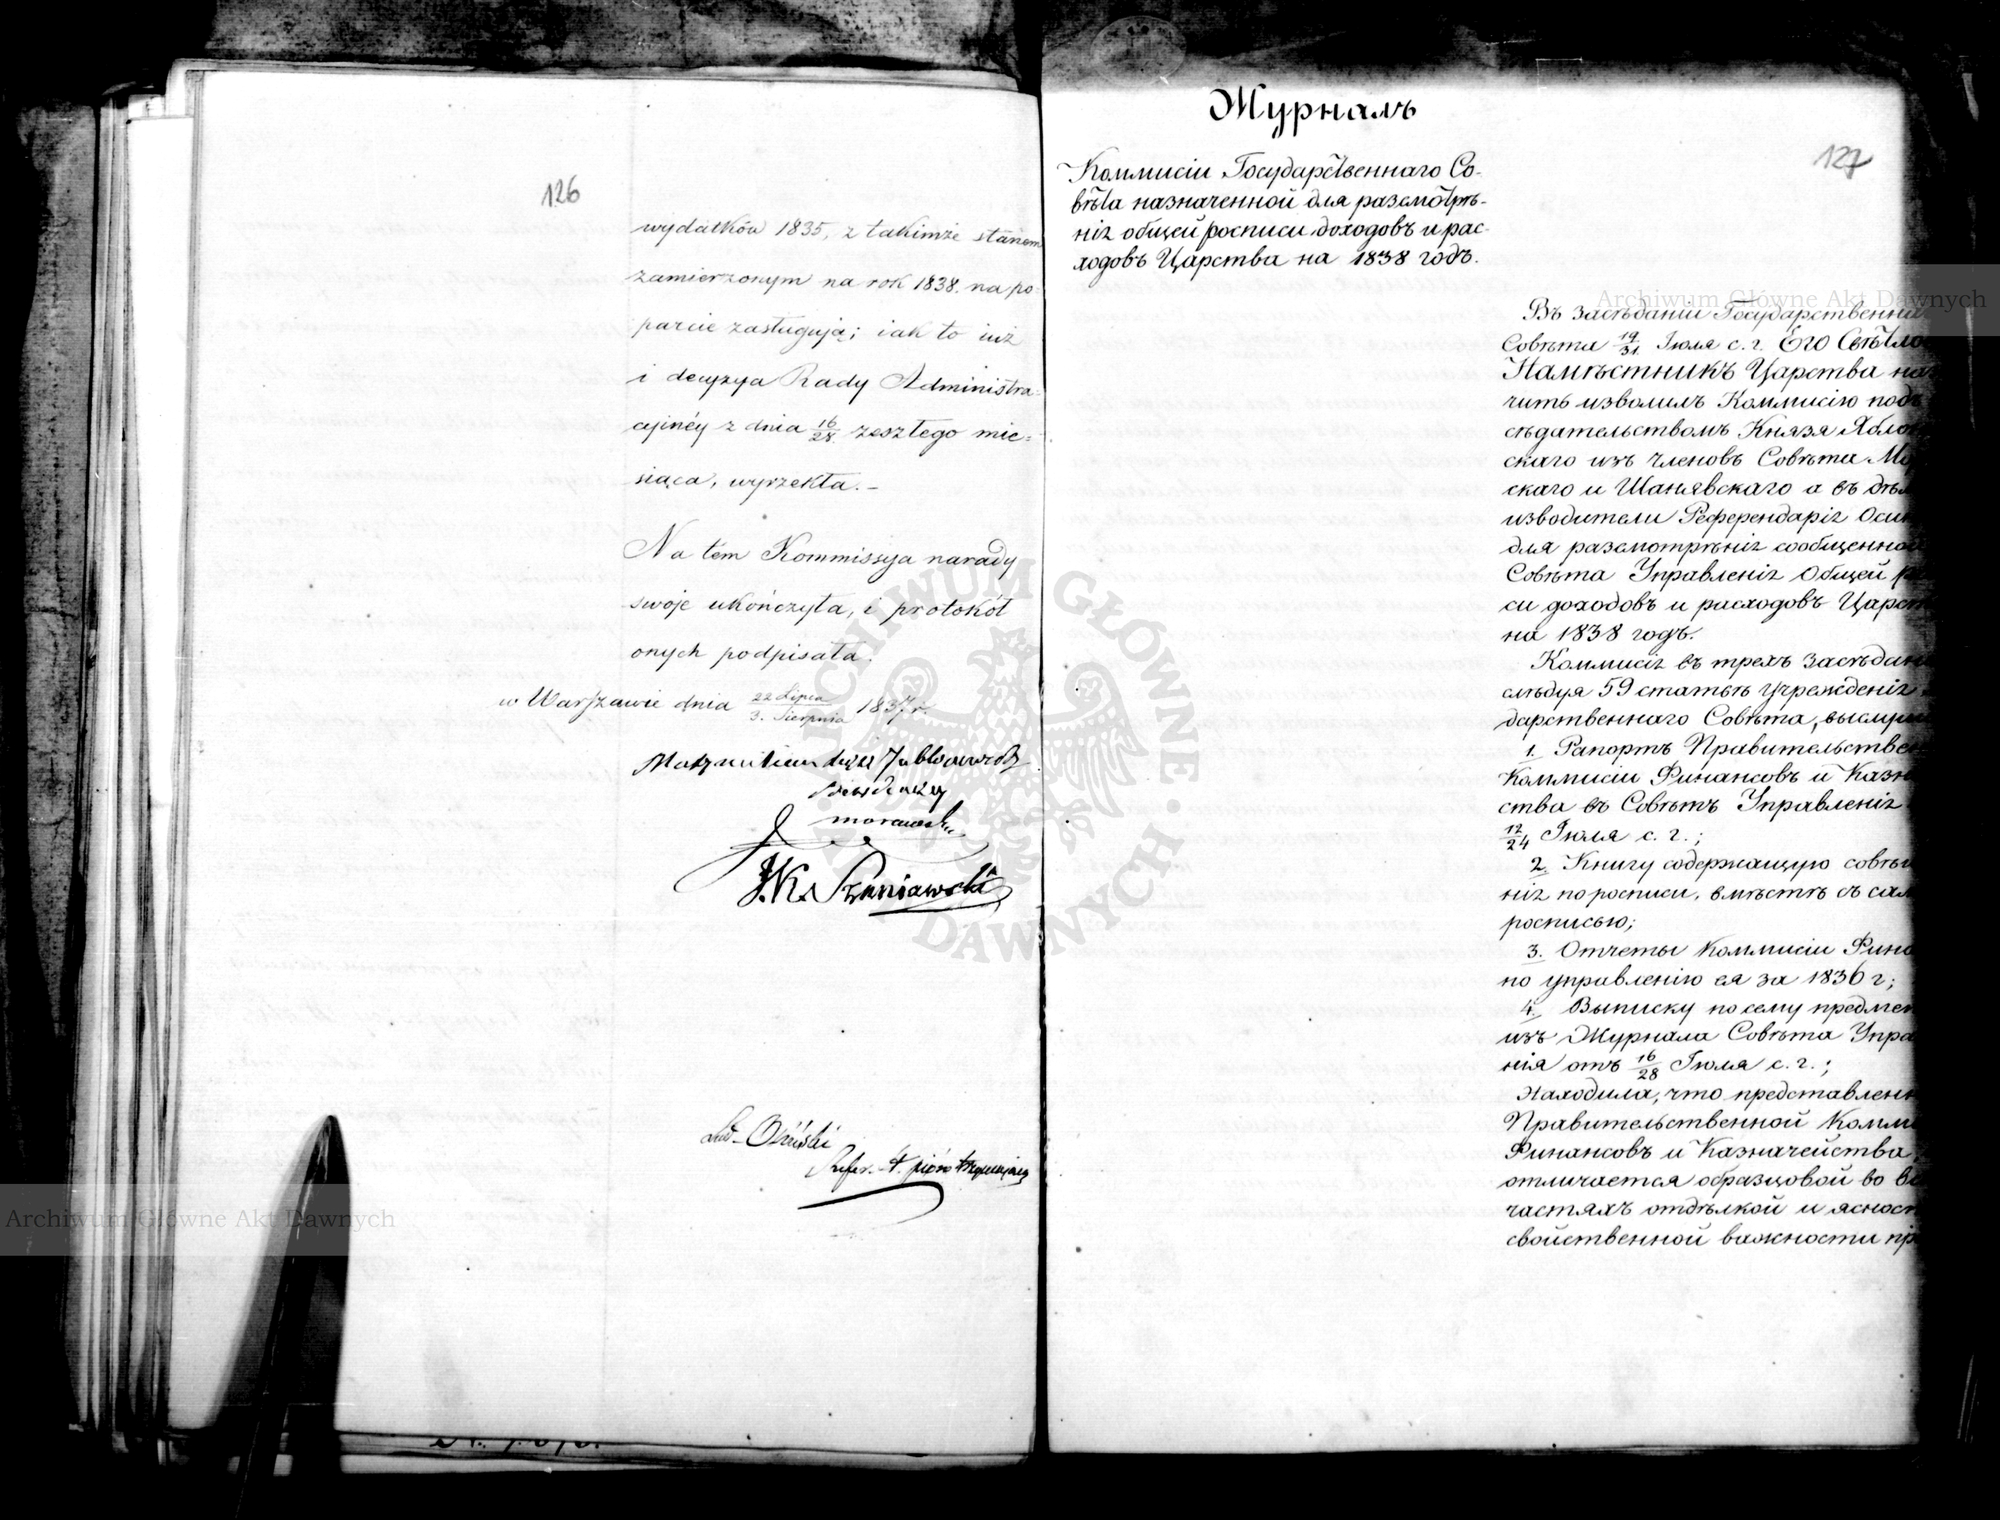 126
wydatków 1835, z takimże stanem
zamierzonym na rok 1838. na po-
parcie zasługują; iak to iuż
i decyzya Rady Administra-
cyinéy z dnia 16/28 zeszłego mie-
siąca, wyrzekła. –
Na tém Kommissya narady
swoje ukończyła, i protokół
onych podpisała.
w Warszawie dnia 22 Lipca/3. Sierpnia 1837 r.
Maxymilian Jabłonowski
Morawski
J.K. Szaniawski
Osiński
Refer.
127
Журналъ
Коммисіи Государственнаго Со-
вѣта назначенной для разсмотрѣ-
нія общей росписи доходовъ и рас-
ходовъ Царства на 1838 годъ.
Въ засѣданіи Государственна
Совѣта 19/31 Іюля с. г. Его Свѣтло
Намѣстникъ Царства наз
чить изволилъ Коммисію подъ
сѣдательствомъ Князя Ябло
скаго изъ Членовъ Совѣта Мо
скаго и Шанявскаго а въ дѣл
изводители Референдарія Осин
для разсмотрѣнія сообщенной
Совѣта Управленія Общей р
си доходовъ и расходовъ Царст
на 1838 годъ.
Коммисія въ трехъ засѣдан
слѣдуя 59 статьѣ Учрежденія
дарственнаго Совѣта, выслуш
1. Рапортъ Правительствен
Коммисіи Финансовъ и Казн
ства въ Совѣтъ Управленія
12/24 Іюля с. г.;
2. Книгу содержащую совѣ
нія по росписи, вмѣстѣ съ сам
росписью;
3. Отчеты Коммисіи Фина
по управленію ея за 1836 г;
4. Выписку по сему предмет
изъ Журнала Совѣта Упра
нія отъ 16/28 Іюля с. г.;
Находила, что представлен
Правительственной Комми
Финансовъ и Казначейства
отличается образцовой во вс
частяхъ отдѣлкой и ясност
свойственной важности пр
Archiwum Główne Akt Dawnych
Archiwum Główne Akt Dawnych
ARCHIWUM GŁÓWNE
DAWNYCH